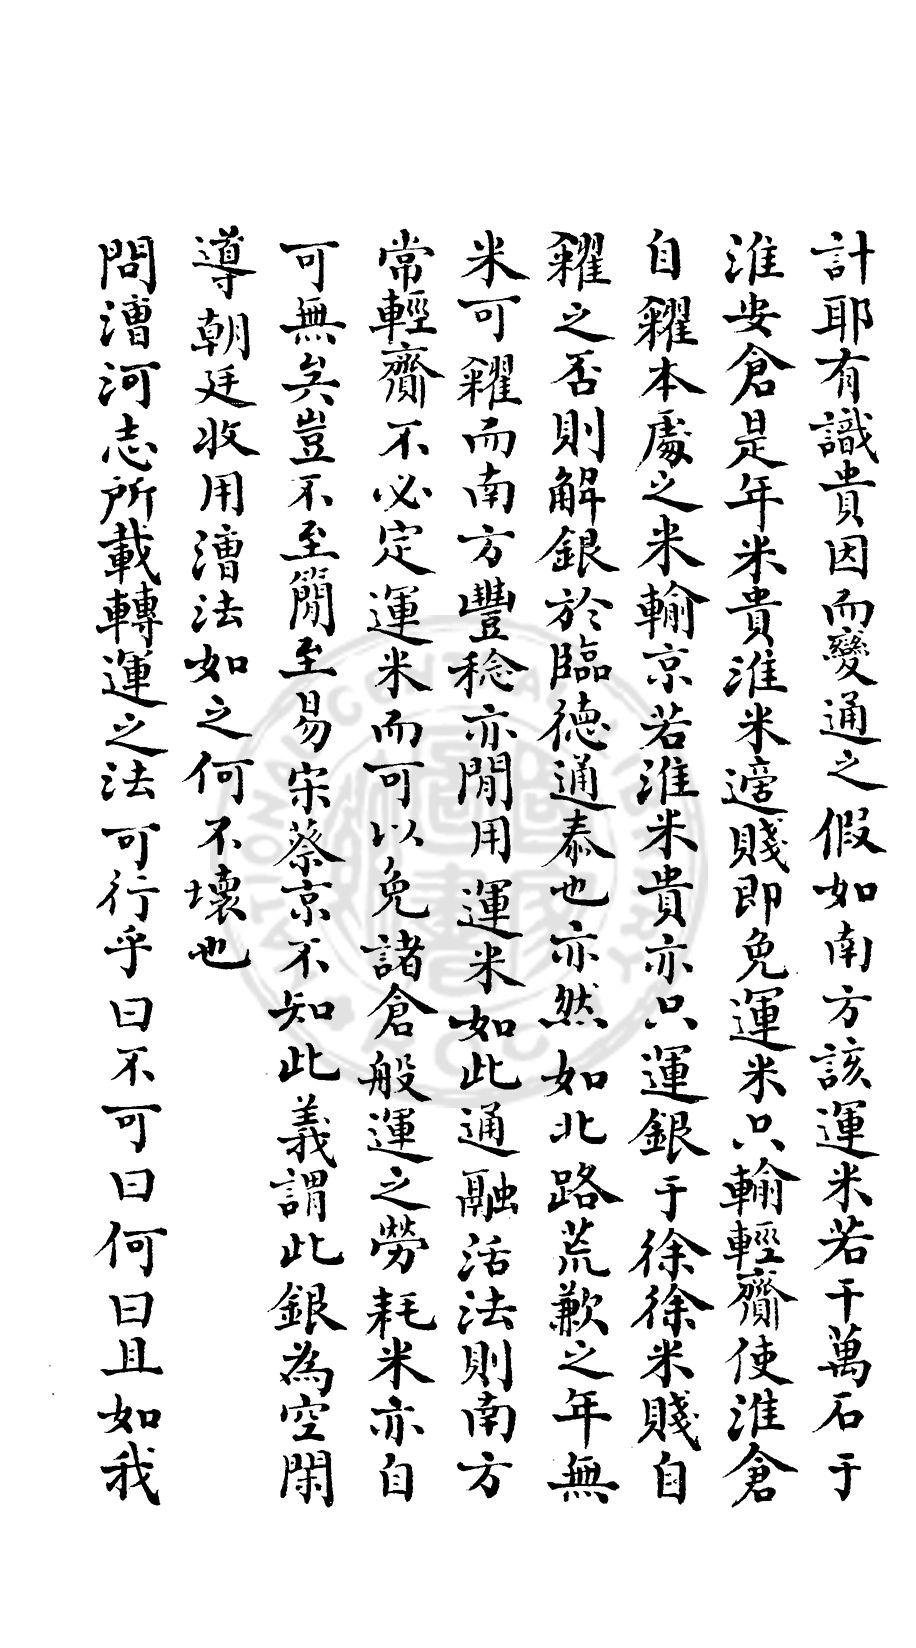 計耶有識貴因而變通之假如南方該運米若干萬石于
淮安倉是年米貴淮米適賤即免運米只輸輕齎使淮倉
自糴本處之米輸京若淮米貴亦只運銀于徐徐米賤自
糴之否則解銀於臨德通泰也亦然如北路荒歉之年無
米可糴而南方豐稔亦閒用運米如此通融活法則南方
常輕齎不必定運米而可以免諸倉般運之勞耗米亦自
可無矣豈不至簡至易宋蔡京不知此義謂此銀為空閑
導朝廷收用漕法如之何不壞也
問漕河志所載轉運之法可行乎曰不可曰何曰且如我